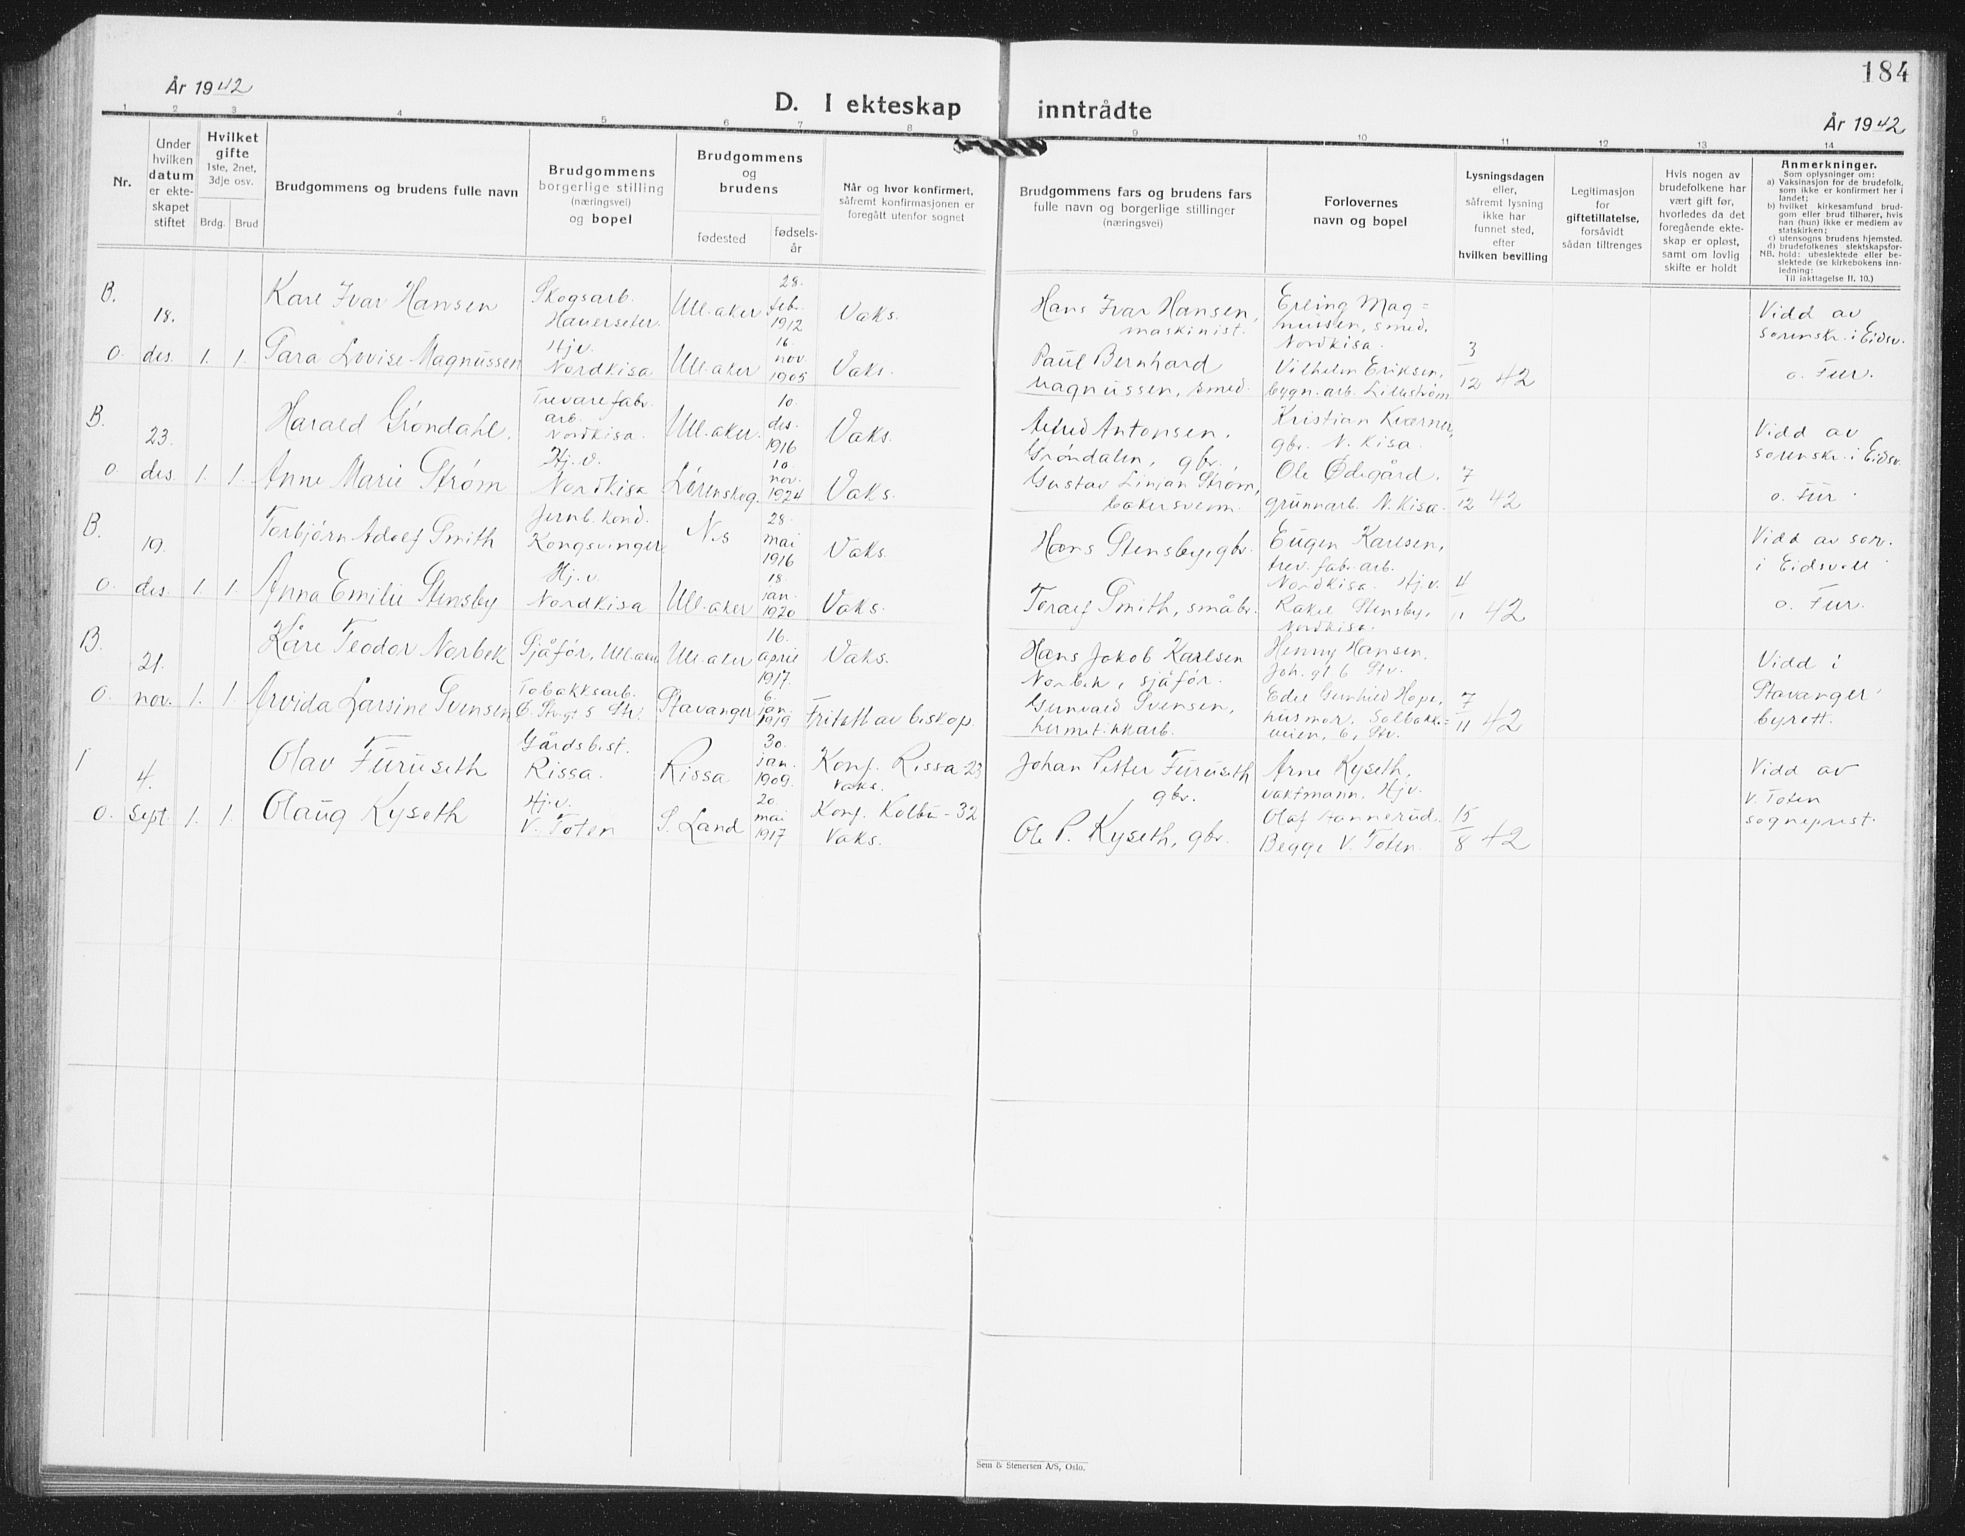 184
År 1942
D. I ekteskap inntrådte
År 1942
1 2 3 4 5 6 7 8 9 10 11 12 13 14
Nr.
Under
hvilken
datum
er ekte-
skapet
stiftet
Hvilket
gifte
1ste, 2net,
3dje osv.
Brdg. Brud
Brudgommens og brudens fulle navn
Brudgommens
borgerlige stilling
(næringsvei)
og bopel
Brudgommens
og
brudens
fødested
fødsels-
år
Når og hvor konfirmert,
såfremt konfirmasjonen er
foregått utenfor sognet
Brudgommens fars og brudens fars
fulle navn og borgerlige stillinger
(næringsvei)
Forlovernes
navn og bopel
Lysningsdagen
eller,
såfremt lysning
ikke har
funnet sted,
efter
hvilken bevilling
Legitimasjon
for
giftetillatelse,
forsåvidt
sådan tiltrenges
Hvis nogen av
brudefolkene har
vært gift før,
hvorledes da det
foregående ekte-
skap er opløst,
samt om lovlig
skifte er holdt
Anmerkninger.
Som oplysninger om:
a) Vaksinasjon for de brudefolk,
som ikke er konfirmert her i
landet;
b) hvilket kirkesamfund brud-
gom eller brud tilhører, hvis
han (hun) ikke er medlem av
statskirken;
c) utensogns brudens hjemsted.
d) brudefolkenes slektskapsfor-
NB. hold: ubeslektede eller be-
slektede (se kirkebokens inn-
ledning:
Til iakttagelse II. 10.)
B.
0.
18.
des.
1. 1.
Kåre Ivar Hansen
Sara Lovise Magnussen
Skogsarb.
Hauerseter.
Hjv.
Nordkisa
Ull.aker
Ull.aker
28.
feb.
1912
16.
nov.
1905
Vaks.
Vaks.
Hans Ivar Hansen,
maskinist.
Paul Bernhard
Magnussen, smed.
Erling Mag=
nussen, smed,
Nordkisa.
Vilhelm Eriksen,
bygn.arb. Lillestrøm
3
12 42
Vidd av
sorenskr. i Eidsv.
o. Fur.
B.
0.
23.
des.
1. 1.
Harald Grøndahl.
Anne Marie Strøm
Trevarefabr.
arb.
Nordkisa.
Hj.v.
Nordkisa
Ull.aker.
Lørenskog.
10.
des.
1916
10.
nov.
1924
Vaks.
Vaks.
Alfred Antonsen,
Grøndalen, gbr.
Gustav Strøm,
bakersvenn.
Kristian Kværner,
gbr. N. Kisa.
Ole Ødegård.
grunnarb. N. Kisa.
7
12 42
Vidd av
sorenskr. i Eidsv.
o. Fur.
B.
0.
19.
des.
1. 1.
Torbjørn Adolf Smith
Anna Emilie Stensby
Jernb.kond.
Kongsvinger
Hj.v.
Nordkisa
Nes
Ull.aker
28.
mai
1916
18.
jan.
1920
Vaks.
Vaks.
Hans Stensby, gbr.
Toralf Smith, småbr.
Eugen Karlsen,
trev.fabr.arb.
Nordkisa. Hj.v.
Rakel Stensby,
Nordkisa.
4
11 42
Vidd av sor.
i Eidsvoll
o. Fur.
B.
0.
21.
nov.
1. 1.
Kåre Teodor Norbek
Arvida Larsine Svensen
Sjåfør, Ull.aker
Tobakksarb.
Ull.aker
Stavanger
16.
april
1917.
6.
jan.
1919
Vaks.
Fritatt av biskop.
Hans Jakob Karlsen
Norbek, sjåfør.
Gunvald Svensen,
hermetikkarb.
Henny Hansen.
Joh. gt. 6 Stv.
Edel Gunhild Hope,
husmor. Solbakke=
veien, 6, Stv.
7
11 42
Vidd i
Stavanger
byrett.
1
0.
4.
Sept.
1. 1.
Olav Furuseth
Olaug Kyseth
Gårdsbest.
Rissa.
Hj.v.
V. Toten
Rissa
S. Land
30.
jan.
1909.
20.
mai
1917
Konf. Rissa-23
Vaks.
Konf. Kolbu-32
Vaks.
Johan Petter Furuseth
gbr.
Ole P. Kyseth, gbr.
Arne Kyseth,
vaktmann, Hjv.
Olaf
Begge V. Toten.
15
8 42
Vidd av
V. Toten
sogneprest.
Sem & Stenersen A/S, Oslo.